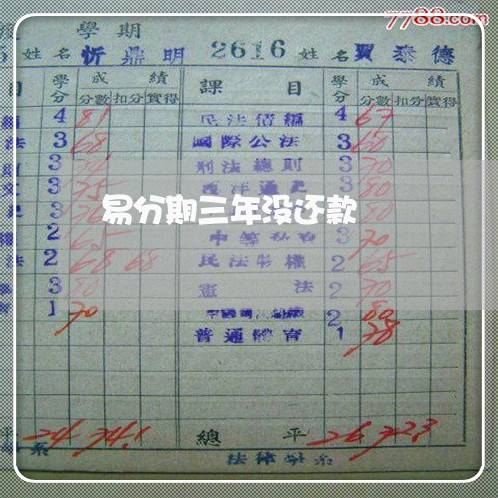 7788.com
學期
姓名 忻鼎明 2616 姓名 賈泰德
目 學分 成績 課目 學分 成績
分數 扣分 實得 分數 扣分 實得
4 81 民法債編 4 67
法 3 68 國際公法 3 60
3 刑法總則 3 70
3 75 西洋通史 3 80
易分期三年没还款
3 80
2 65 3 70
法 2 68 68 民法物權 2 65
3 80 憲法 2 70
1 70 2 80
普通體育 1 78
平 24 74.1 總平 26 72.3
系 法律學系